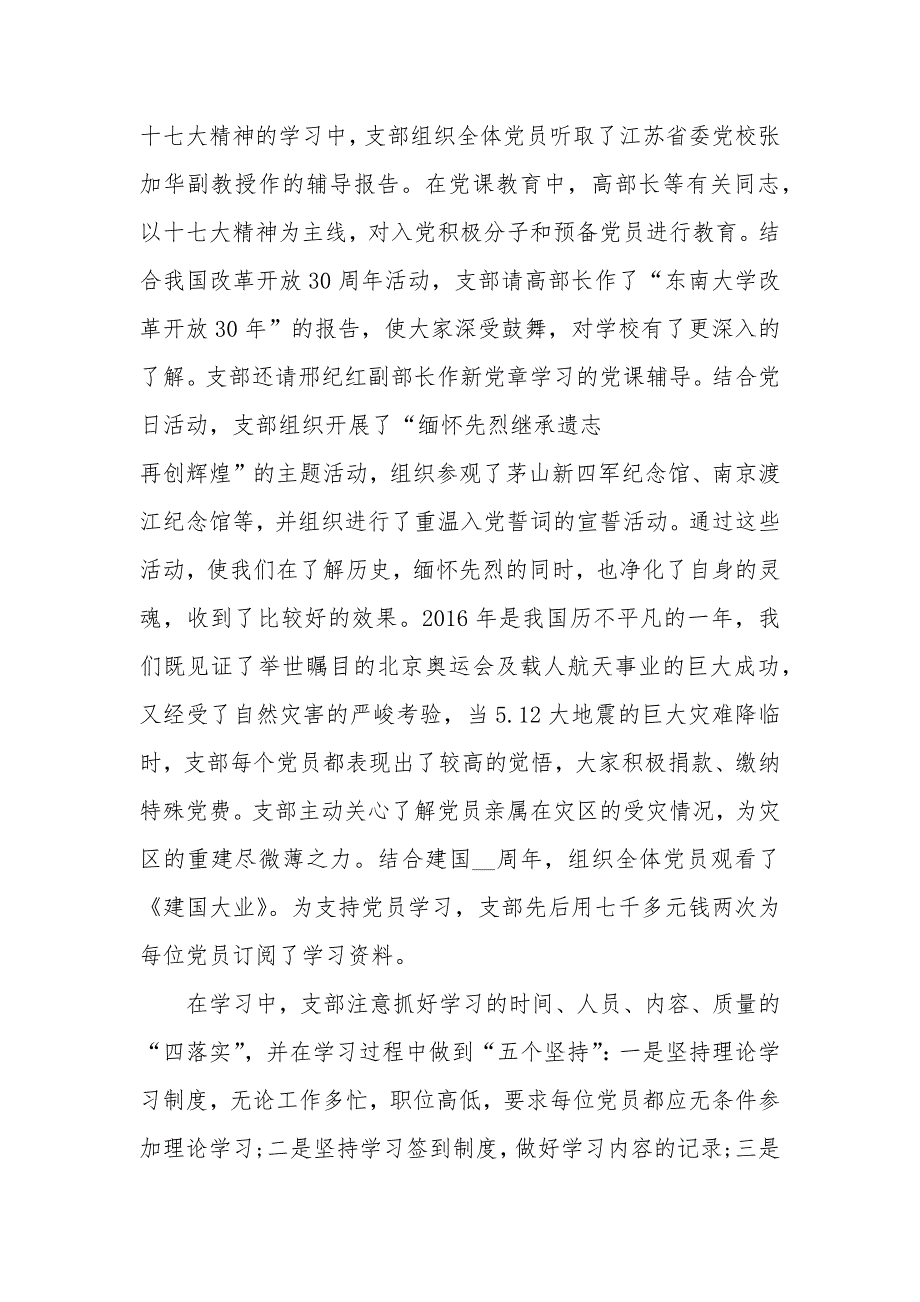 十七大精神的学习中，支部组织全体党员听取了江苏省委党校张
加华副教授作的辅导报告。在党课教育中，高部长等有关同志，
以十七大精神为主线，对入党积极分子和预备党员进行教育。结
合我国改革开放 30 周年活动，支部请高部长作了“东南大学改
革开放 30 年”的报告，使大家深受鼓舞，对学校有了更深入的
了解。支部还请邢纪红副部长作新党章学习的党课辅导。结合党
日活动，支部组织开展了“缅怀先烈继承遗志
再创辉煌”的主题活动，组织参观了茅山新四军纪念馆、南京渡
江纪念馆等，并组织进行了重温入党誓词的宣誓活动。通过这些
活动，使我们在了解历史，缅怀先烈的同时，也净化了自身的灵
魂，收到了比较好的效果。2016 年是我国历不平凡的一年，我
们既见证了举世瞩目的北京奥运会及载人航天事业的巨大成功，
又经受了自然灾害的严峻考验，当 5.12 大地震的巨大灾难降临
时，支部每个党员都表现出了较高的觉悟，大家积极捐款、缴纳
特殊党费。支部主动关心了解党员亲属在灾区的受灾情况，为灾
区的重建尽微薄之力。结合建国__周年，组织全体党员观看了
《建国大业》。为支持党员学习，支部先后用七千多元钱两次为
每位党员订阅了学习资料。
在学习中，支部注意抓好学习的时间、人员、内容、质量的
“四落实”，并在学习过程中做到“五个坚持”：一是坚持理论学
习制度，无论工作多忙，职位高低，要求每位党员都应无条件参
加理论学习;二是坚持学习签到制度，做好学习内容的记录;三是